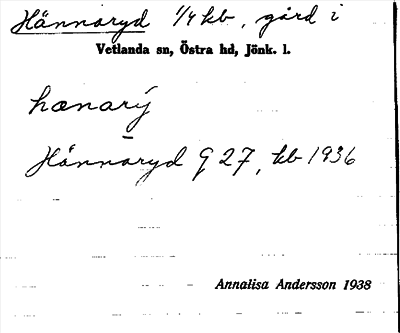 Hännaryd 1/4 kb, gård i
Vetlanda sn, Östra hd, Jönk. l.
hænarý
Hännaryd G 27, kb 1936
Annalisa Andersson 1938